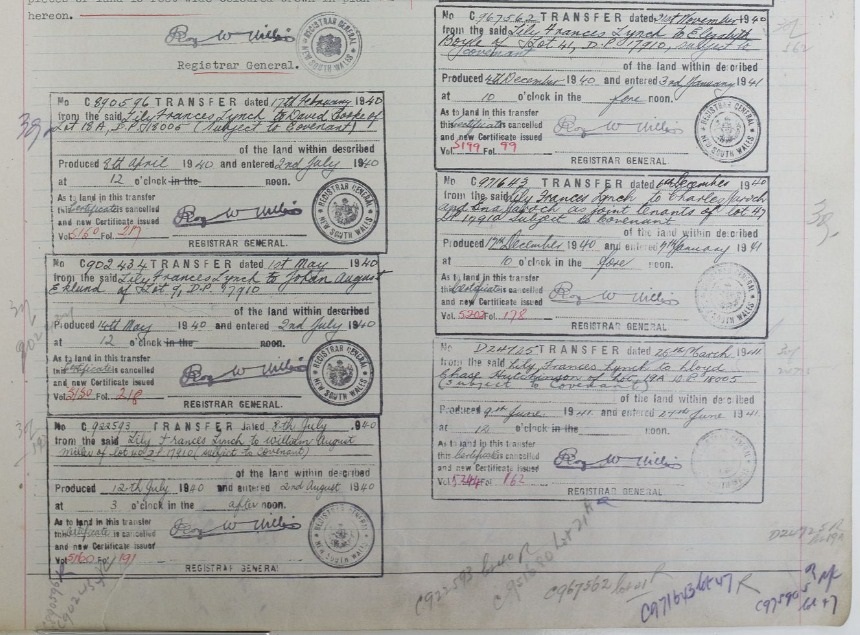 hereon.
Registrar General.
No C890596 TRANSFER dated 17th February 1940
from the said Lily Frances Lynch to David Cooke of
Lot 18A, D.P. 18005 (subject to Covenant)
of the land within described
Produced 8th April 1940 and entered 2nd July 1940
at 12 o'clock in the noon.
As to land in this transfer
this Certificate is cancelled
and new Certificate issued
Vol. 5160 Fol. 217
REGISTRAR GENERAL.
No C902434 TRANSFER dated 1st May 1940
from the said Lily Frances Lynch to Johan August
Eklund of Lot 9, D.P. 17910
of the land within described
Produced 14th May 1940 and entered 2nd July 1940
at 12 o'clock in the noon.
As to land in this transfer
this Certificate is cancelled
and new Certificate issued
Vol. 5160 Fol. 218
REGISTRAR GENERAL.
No C922593 TRANSFER dated 8th July 1940
from the said Lily Frances Lynch to William August
of lot 40 D.P. 17910 (subject to Covenant)
of the land within described
Produced 12th July 1940 and entered 2nd August 1940
at 3 o'clock in the after noon.
As to land in this transfer
this Certificate is cancelled
and new Certificate issued
Vol. 5160 Fol. 191
REGISTRAR GENERAL
No C967562 TRANSFER dated 21st November 1940
from the said Lily Frances Lynch to Elizabeth
Boyle of Lot 41, D.P. 17910, subject to
Covenant
of the land within described
Produced 4th December 1940 and entered 3rd January 1941
at 10 o'clock in the fore noon.
As to land in this transfer
this Certificate is cancelled
and new Certificate issued
Vol. 5199 Fol. 99
REGISTRAR GENERAL.
No C971643 TRANSFER dated 6th December 1940
from the said Lily Frances Lynch to Charles
and as joint tenants of Lot 47
D.P. 17910 subject to Covenant
of the land within described
Produced 17th December 1940 and entered 9th January 1941
at 10 o'clock in the fore noon.
As to land in this transfer
this Certificate is cancelled
and new Certificate issued
Vol. 5202 Fol. 178
REGISTRAR GENERAL.
No D24725 TRANSFER dated 26th March 1941
from the said Lily Frances Lynch to Lloyd
Chase Hutchinson of Lot 19A D.P. 18005
(Subject to Covenant)
of the land within described
Produced 9th June 1941 and entered 27th June 1941
at 12 o'clock in the noon.
As to land in this transfer
this Certificate is cancelled
and new Certificate issued
Vol. 5244 Fol. 162
REGISTRAR GENERAL
C922593 lot 40 R
C967562 lot 41 R
C971643 lot 47 R